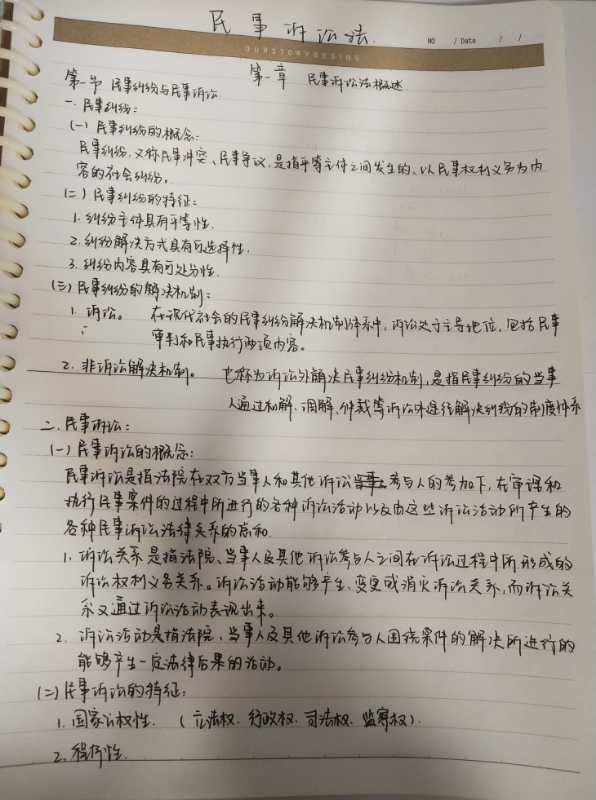 民事诉讼法
NO / Date / /
第一章 民事诉讼法概述
第一节 民事纠纷与民事诉讼
一、民事纠纷:
(一)民事纠纷的概念:
民事纠纷,又称民事冲突、民事争议,是指平等主体之间发生的、以民事权利义务为内
容的社会纠纷。
(二)民事纠纷的特征:
1. 纠纷主体具有平等性.
2. 纠纷解决方式具有可选择性.
3. 纠纷内容具有可处分性.
(三)民事纠纷的解决机制:
1. 诉讼。 在现代社会的民事纠纷解决机制体系中,诉讼处于主导地位,包括民事
审判和民事执行两项内容。
2. 非诉讼解决机制。 也称为诉讼外解决民事纠纷机制,是指民事纠纷的当事
人通过和解、调解、仲裁等诉讼外途径解决纠纷的制度体系
二、民事诉讼:
(一)民事诉讼的概念:
民事诉讼是指法院在双方当事人和其他诉讼参与人的参加下,在审理和
执行民事案件的过程中所进行的各种诉讼活动以及由这些诉讼活动所产生的
各种民事诉讼法律关系的总和.
1. 诉讼关系是指法院、当事人及其他诉讼参与人之间在诉讼过程中所形成的
诉讼权利义务关系。诉讼活动能够产生、变更或消灭诉讼关系,而诉讼关
系又通过诉讼活动表现出来。
2. 诉讼活动是指法院、当事人及其他诉讼参与人围绕案件的解决所进行的
能够产生一定法律后果的活动。
(二)民事诉讼的特征:
1. 国家公权性. (立法权、行政权、司法权、监察权).
2. 程序性.